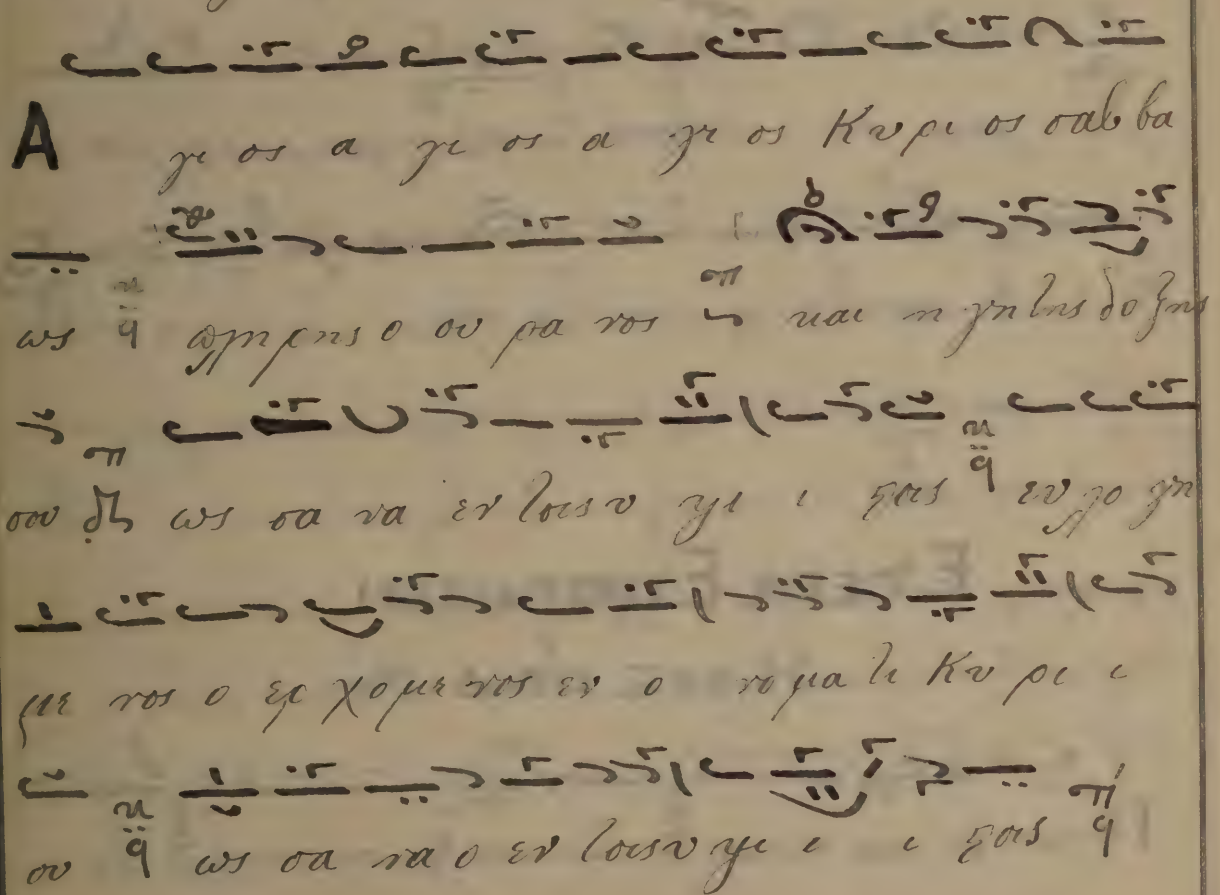 Α γι ος α γι ος α γι ος Κυ ρι ος σαβ βα
ωθ πληρης ο ου ρα νος και η γη της δο ξης
σου ως σα να εν τοις υ ψι ι στοις ευ λο γη
με νος ο ερ χο με νος εν ο νο μα τι Κυ ρι ι
ου ως σα να ο εν τοις υ ψι ι ι στοις